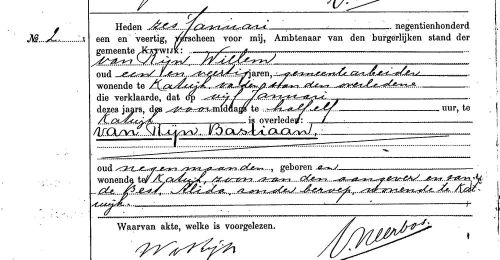 Nº 2.
Heden zes Januari negentienhonderd
een en veertig, verscheen voor mij, Ambtenaar van den burgerlijken stand der
gemeente KATWIJK:
van Rijn Willem
oud een en veertig jaren, gemeentearbeider
wonende te Katwijk, vader van den overledene
die verklaarde, dat op vijf Januari
dezes jaars, des voormiddags te half elf uur, te
Katwijk is overleden:
van Rijn, Bastiaan,
oud negen maanden, geboren en
wonende te Katwijk, zoon van den aangever en van
de Best, Alida, zonder beroep, wonende te Kat-
wijk.
Waarvan akte, welke is voorgelezen.
W v Rijn